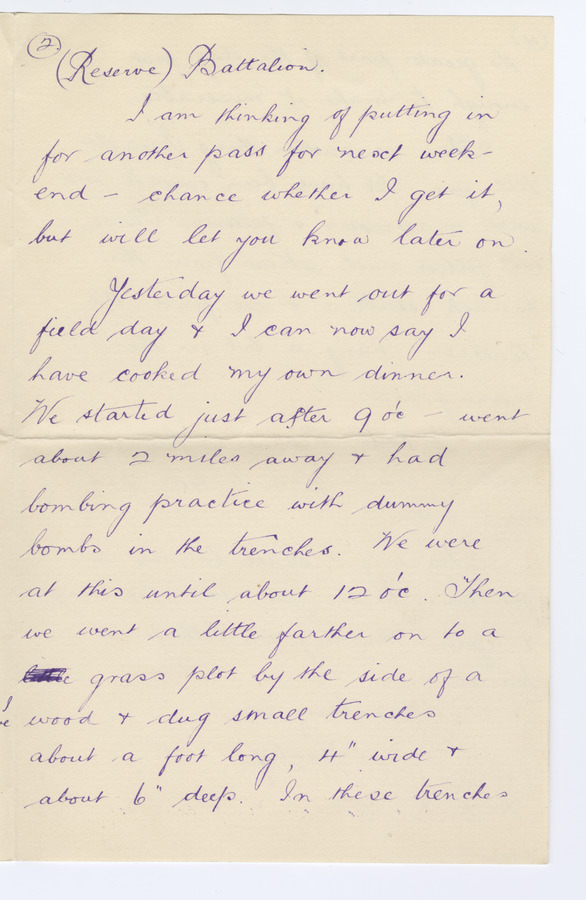 2
(Reserve) Battalion.
I am thinking of putting in
for another pass for next week-
end - chance whether I get it,
but will let you know later on.
Yesterday we went out for a
field day & I can now say I
have cooked my own dinner.
We started just after 9 o'c - went
about 2 miles away & had
bombing practice with dummy
bombs in the trenches. We were
at this until about 12 o'c. Then
we went a little farther on to a
grass plot by the side of a
wood & dug small trenches
about a foot long, 4" wide &
about 6" deep. In these trenches